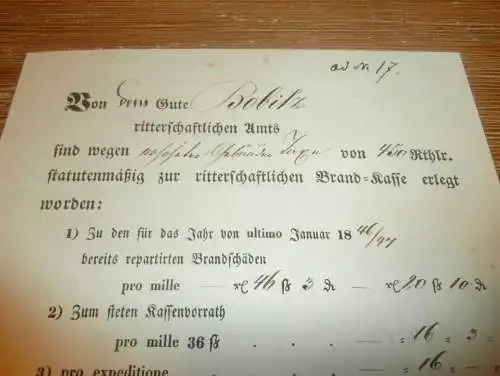 ad No. 17.
Von dem Gute Bobitz
ritterschaftlichen Amts
sind wegen Gebäuden Taxe von 450 Rthlr.
statutenmäßig zur ritterschaftlichen Brand-Kasse erlegt
worden:
1) Zu den für das Jahr von ultimo Januar 1846/47
bereits repartirten Brandschäden
pro mille — rℓ 46 ßl 3 ₰ — rℓ 20 ßl 10 ₰
2) Zum steten Kassenvorrath
pro mille 36 ßl . . . — = 16 = 3 =
3) pro expeditione . . . — = 16 =